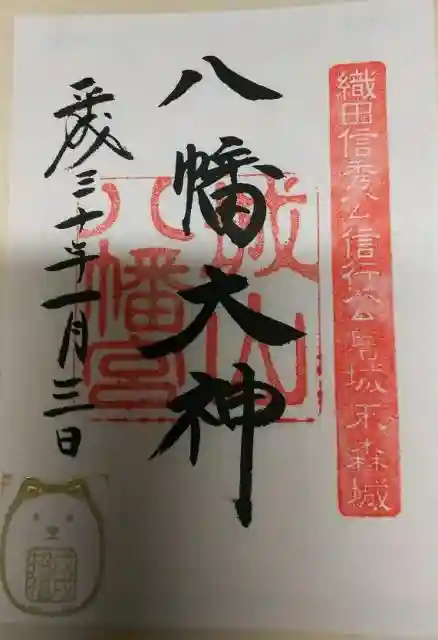 織田信秀公信行公居城末森城
八幡大神
城山
八幡宮
平成三十年一月三日